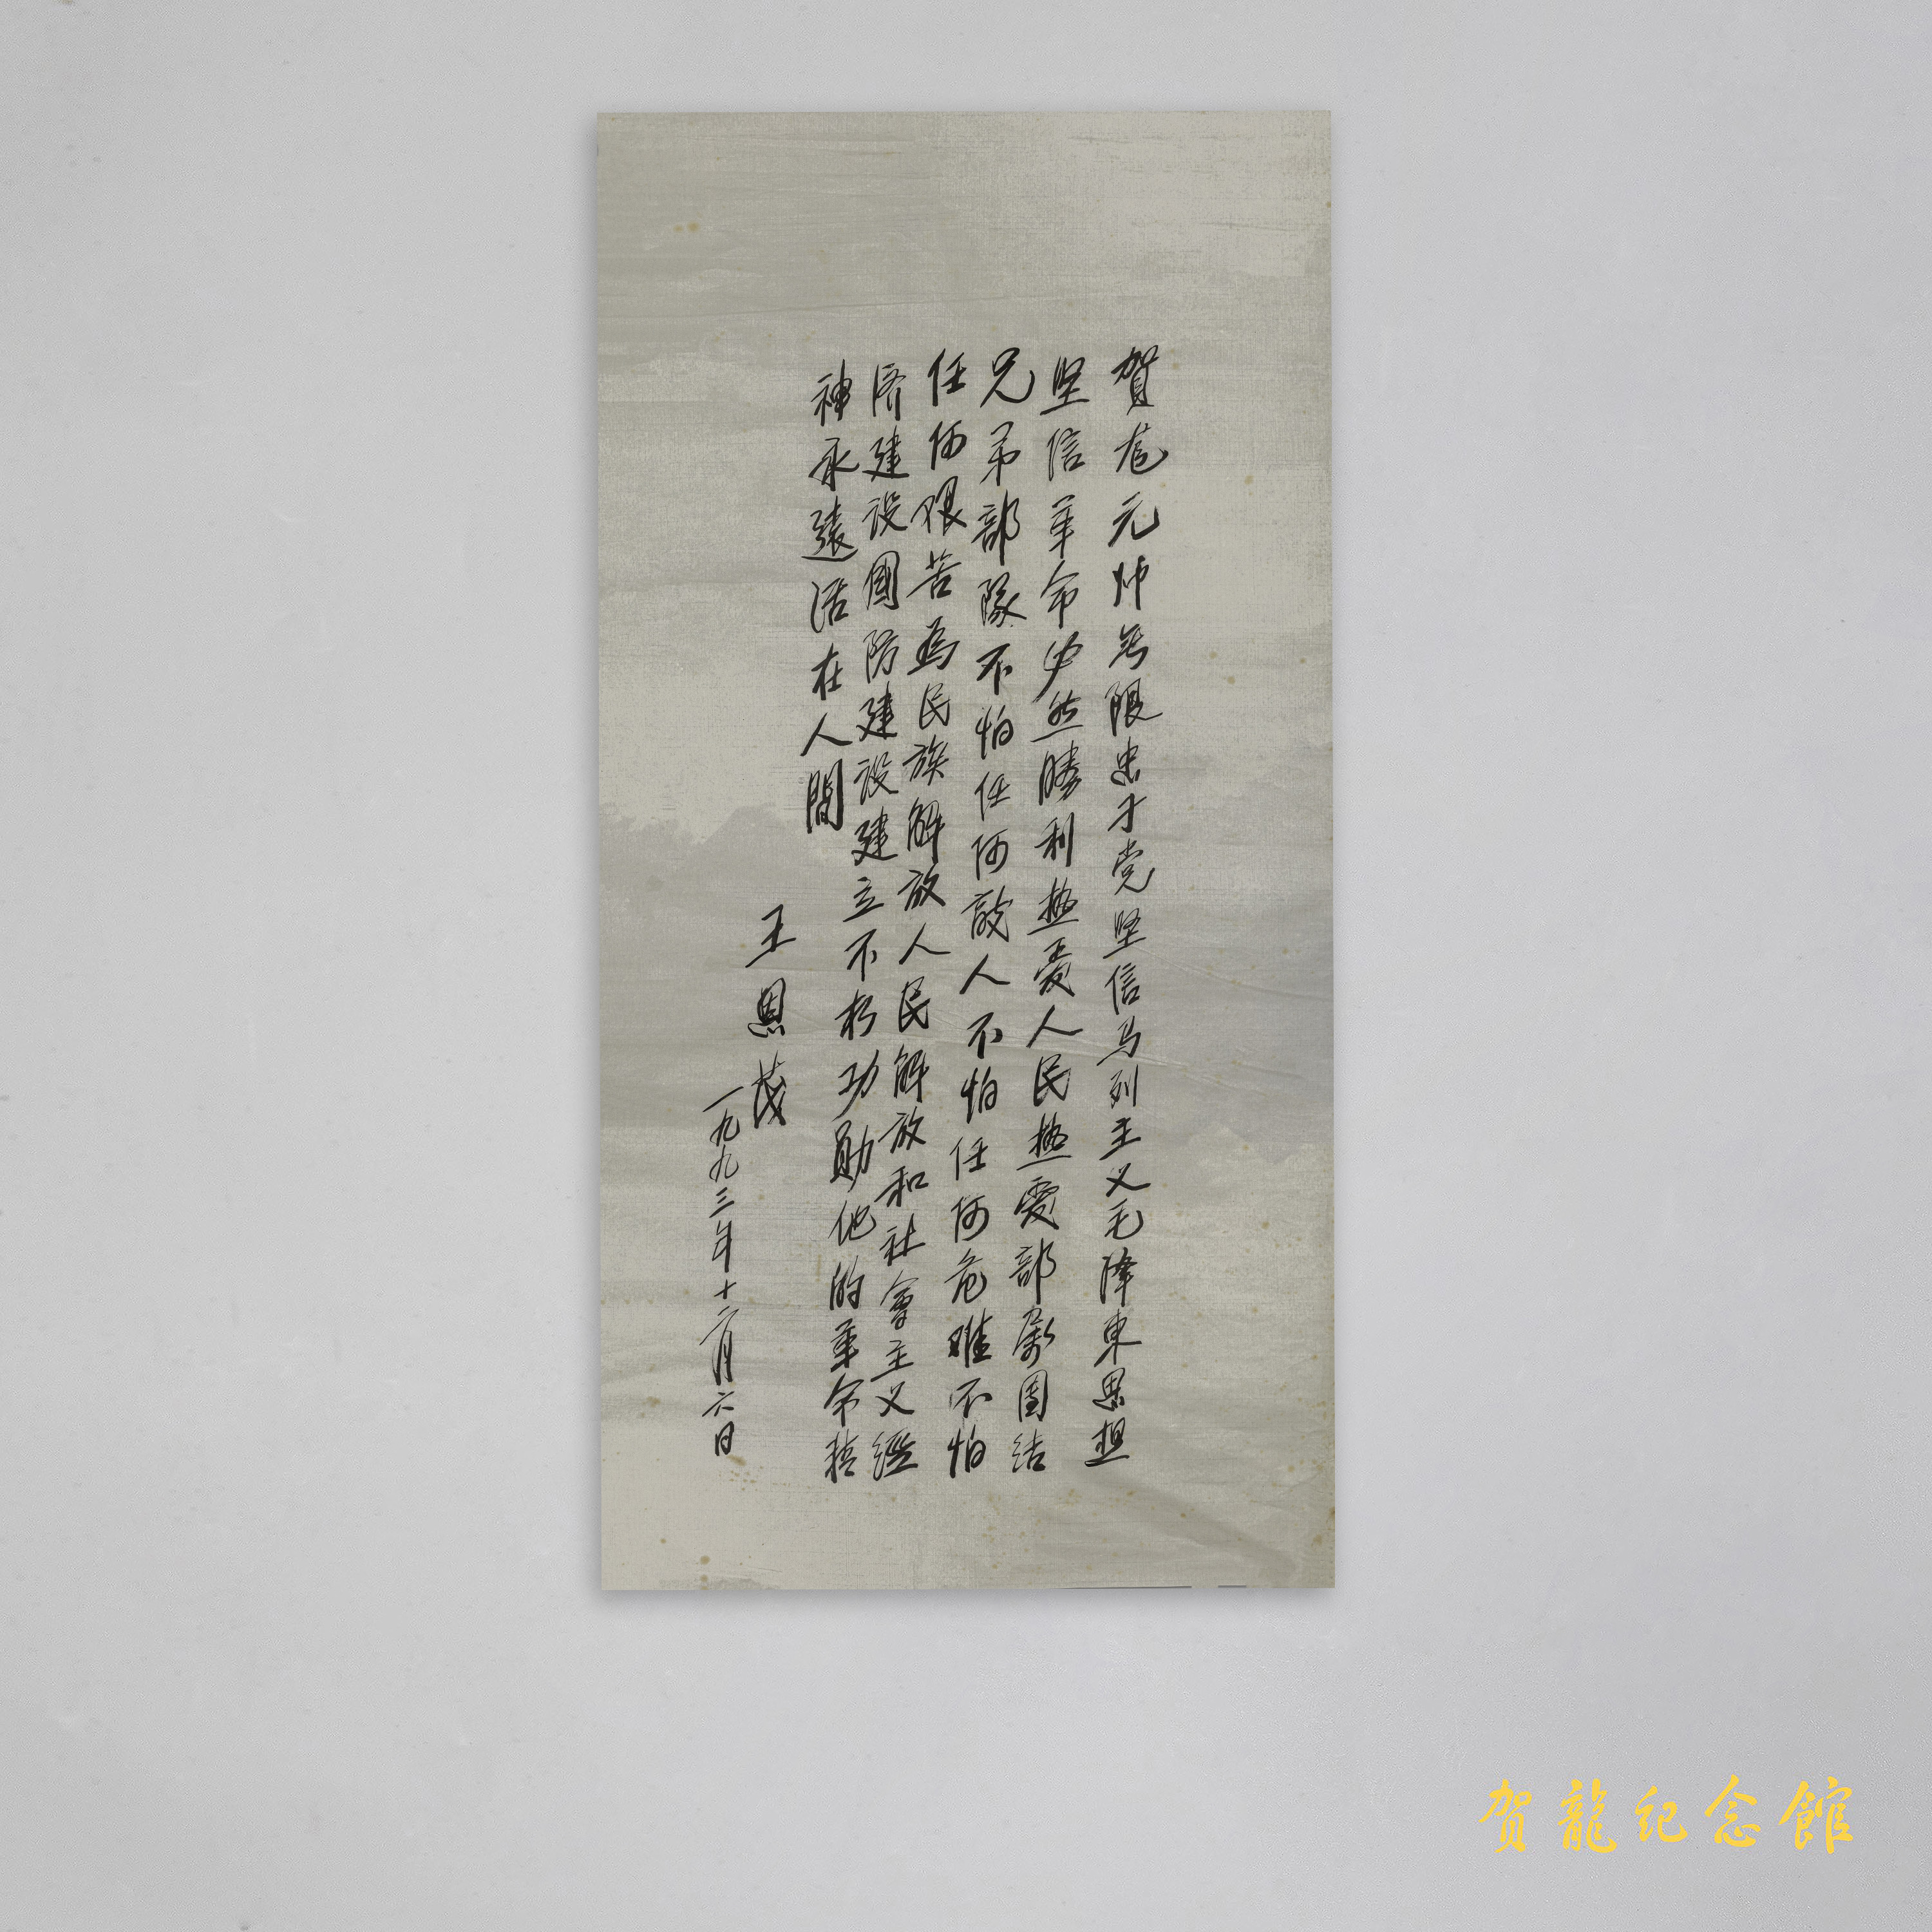 賀龙元帅无限忠于党坚信马列主义毛泽東思想
坚信革命必然勝利热爱人民热爱部队團结
兄弟部隊不怕任何敌人不怕任何危难不怕
任何艰苦為民族解放人民解放和社會主义經
济建设國防建设建立不朽功勛他的革命精
神永遠活在人間
王恩茂
一九九三年十二月六日
賀龍纪念館